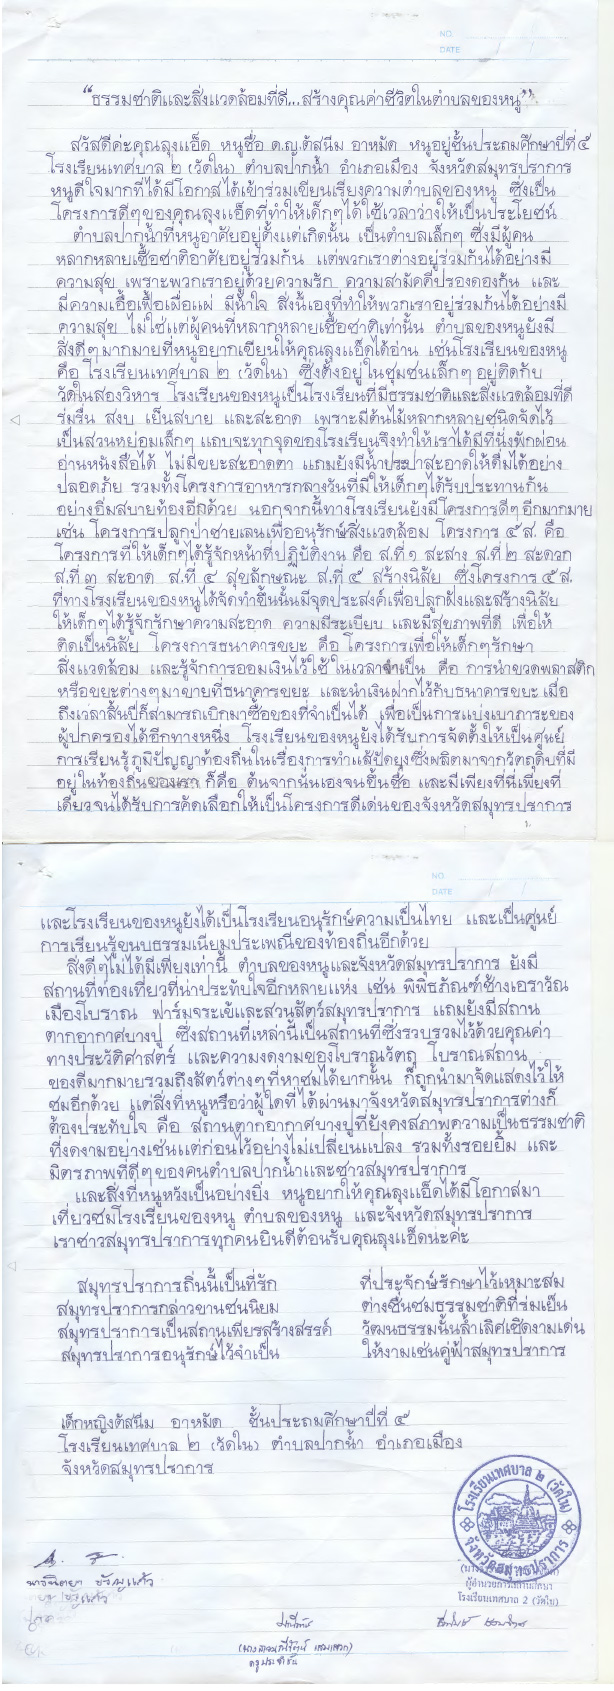 NO.
DATE
"ธรรมชาติและสิ่งแวดล้อมที่ดี...สร้างคุณค่าชีวิตในตำบลของหนู"
สวัสดีค่ะคุณลุงแอ็ด หนูชื่อ ด.ญ.ต้สนีม อาหมัด หนูอยู่ชั้นประถมศึกษาปีที่ ๕
โรงเรียนเทศบาล ๒ (วัดใน) ตำบลปากน้ำ อำเภอเมือง จังหวัดสมุทรปราการ
หนูดีใจมากที่ได้มีโอกาสได้เข้าร่วมเขียนเรียงความตำบลของหนู ซึ่งเป็น
โครงการดีๆของคุณลุงแอ็ดที่ทำให้เด็กๆได้ใช้เวลาว่างให้เป็นประโยชน์
ตำบลปากน้ำที่หนูอาศัยอยู่ตั้งแต่เกิดนั้น เป็นตำบลเล็กๆ ซึ่งมีผู้คน
หลากหลายเชื้อชาติอาศัยอยู่ร่วมกัน แต่พวกเราต่างอยู่ร่วมกันได้อย่างมี
ความสุข เพราะพวกเราอยู่ด้วยความรัก ความสามัคคีปรองดองกัน และ
มีความเอื้อเฟื้อเผื่อแผ่ มีน้ำใจ สิ่งนี้เองที่ทำให้พวกเราอยู่ร่วมกันได้อย่างมี
ความสุข ไม่ใช่แต่ผู้คนที่หลากหลายเชื้อชาติเท่านั้น ตำบลของหนูยังมี
สิ่งดีๆมากมายที่หนูอยากเขียนให้คุณลุงแอ็ดได้อ่าน เช่นโรงเรียนของหนู
คือ โรงเรียนเทศบาล ๒ (วัดใน) ซึ่งตั้งอยู่ในชุมชนเล็กๆ อยู่ติดกับ
วัดในสองวิหาร โรงเรียนของหนูเป็นโรงเรียนที่มีธรรมชาติและสิ่งแวดล้อมที่ดี
ร่มรื่น สงบ เย็นสบาย และสะอาด เพราะมีต้นไม้หลากหลายชนิดจัดไว้
เป็นสวนหย่อมเล็กๆ แถบจะทุกจุดของโรงเรียนจึงทำให้เราได้มีที่นั่งพักผ่อน
อ่านหนังสือได้ ไม่มีขยะสะอาดตา แถมยังมีน้ำประปาสะอาดให้ดื่มได้อย่าง
ปลอดภัย รวมทั้งโครงการอาหารกลางวันที่มีให้เด็กๆได้รับประทานกัน
อย่างอิ่มสบายท้องอีกด้วย นอกจากนี้ทางโรงเรียนยังมีโครงการดีๆอีกมากมาย
เช่น โครงการปลูกป่าชายเลนเพื่ออนุรักษ์สิ่งแวดล้อม โครงการ ๕ ส. คือ
โครงการที่ให้เด็กๆได้รู้จักหน้าที่ปฏิบัติงาน คือ ส.ที่ ๑ สะสาง ส.ที่ ๒ สะดวก
ส.ที่ ๓ สะอาด ส.ที่ ๔ สุขลักษณะ ส.ที่ ๕ สร้างนิสัย ซึ่งโครงการ ๕ ส.
ที่ทางโรงเรียนของหนูได้จัดทำขึ้นนั้นมีจุดประสงค์เพื่อปลูกฝังและสร้างนิสัย
ให้เด็กๆได้รู้จักรักษาความสะอาด ความมีระเบียบ และมีสุขภาพที่ดี เพื่อให้
ติดเป็นนิสัย โครงการธนาคารขยะ คือ โครงการเพื่อให้เด็กๆรักษา
สิ่งแวดล้อม และรู้จักการออมเงินไว้ใช้ในเวลาจำเป็น คือ การนำขวดพลาสติก
หรือขยะต่างๆมาขายที่ธนาคารขยะ และนำเงินฝากไว้กับธนาคารขยะ เมื่อ
ถึงเวลาสิ้นปีก็สามารถเบิกมาซื้อของที่จำเป็นได้ เพื่อเป็นการแบ่งเบาภาระของ
ผู้ปกครองได้อีกทางหนึ่ง โรงเรียนของหนูยังได้รับการจัดตั้งให้เป็นศูนย์
การเรียนรู้ภูมิปัญญาท้องถิ่นในเรื่องการทำแส้ปัดยุงซึ่งผลิตมาจากวัตถุดิบที่มี
อยู่ในท้องถิ่นของเรา ก็คือ ต้นจากนั่นเองจนขึ้นชื่อ และมีเพียงที่นี่เพียงที่
เดียวจนได้รับการคัดเลือกให้เป็นโครงการดีเด่นของจังหวัดสมุทรปราการ
NO.
DATE
และโรงเรียนของหนูยังได้เป็นโรงเรียนอนุรักษ์ความเป็นไทย และเป็นศูนย์
การเรียนรู้ขนบธรรมเนียมประเพณีของท้องถิ่นอีกด้วย
สิ่งดีๆไม่ได้มีเพียงเท่านี้ ตำบลของหนูและจังหวัดสมุทรปราการ ยังมี
สถานที่ท่องเที่ยวที่น่าประทับใจอีกหลายแห่ง เช่น พิพิธภัณฑ์ช้างเอราวัณ
เมืองโบราณ ฟาร์มจระเข้และสวนสัตว์สมุทรปราการ แถมยังมีสถาน
ตากอากาศบางปู ซึ่งสถานที่เหล่านี้เป็นสถานที่ซึ่งรวบรวมไว้ด้วยคุณค่า
ทางประวัติศาสตร์ และความงดงามของโบราณวัตถุ โบราณสถาน
ของดีมากมายรวมถึงสัตว์ต่างๆที่หาชมได้ยากนั้น ก็ถูกนำมาจัดแสดงไว้ให้
ชมอีกด้วย แต่สิ่งที่หนูหรือว่าผู้ใดที่ได้ผ่านมาจังหวัดสมุทรปราการต่างก็
ต้องประทับใจ คือ สถานตากอากาศบางปูที่ยังคงสภาพความเป็นธรรมชาติ
ที่งดงามอย่างเช่นแต่ก่อนไว้อย่างไม่เปลี่ยนแปลง รวมทั้งรอยยิ้ม และ
มิตรภาพที่ดีๆของคนตำบลปากน้ำและชาวสมุทรปราการ
และสิ่งที่หนูหวังเป็นอย่างยิ่ง หนูอยากให้คุณลุงแอ็ดได้มีโอกาสมา
เที่ยวชมโรงเรียนของหนู ตำบลของหนู และจังหวัดสมุทรปราการ
เราชาวสมุทรปราการทุกคนยินดีต้อนรับคุณลุงแอ็ดนะค่ะ
สมุทรปราการถิ่นนี้เป็นที่รัก ที่ประจักษ์รักษาไว้เหมาะสม
สมุทรปราการกล่าวขานชนนิยม ต่างชื่นชมธรรมชาติที่ร่มเย็น
สมุทรปราการเป็นสถานเพียรสร้างสรรค์ วัฒนธรรมนั้นล้ำเลิศเชิดงามเด่น
สมุทรปราการอนุรักษ์ไว้จำเป็น ให้งามเช่นคู่ฟ้าสมุทรปราการ
เด็กหญิงต้สนีม อาหมัด ชั้นประถมศึกษาปีที่ ๕
โรงเรียนเทศบาล ๒ (วัดใน) ตำบลปากน้ำ อำเภอเมือง
จังหวัดสมุทรปราการ
โรงเรียนเทศบาล ๒ (วัดใน)
จังหวัดสมุทรปราการ
ผู้อำนวยการสถานศึกษา
โรงเรียนเทศบาล 2 (วัดใน)
ครูประจำชั้น